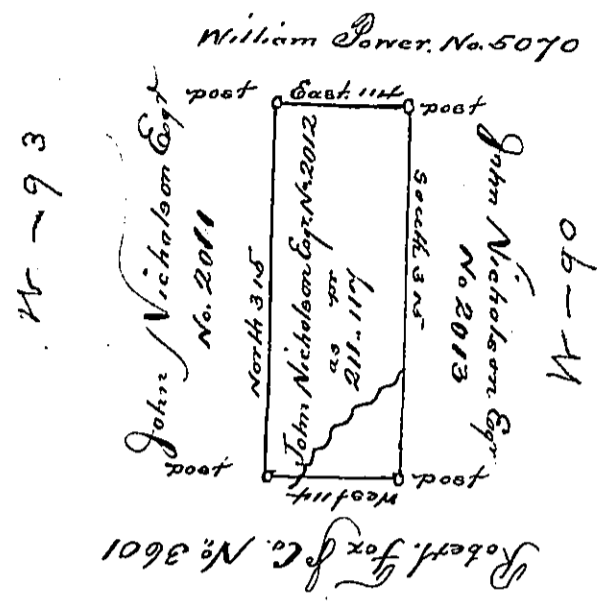 William Power. No. 5070
post East. 114 post
W-93
John Nicholson Esqr
No. 2011
North 315
John Nicholson Esqr. No. 2012
as pr
211..117
South 315
John Nicholson Esqr
No 2013
W-90
post West 114 post
Robert. Fox & Co. No. 3601